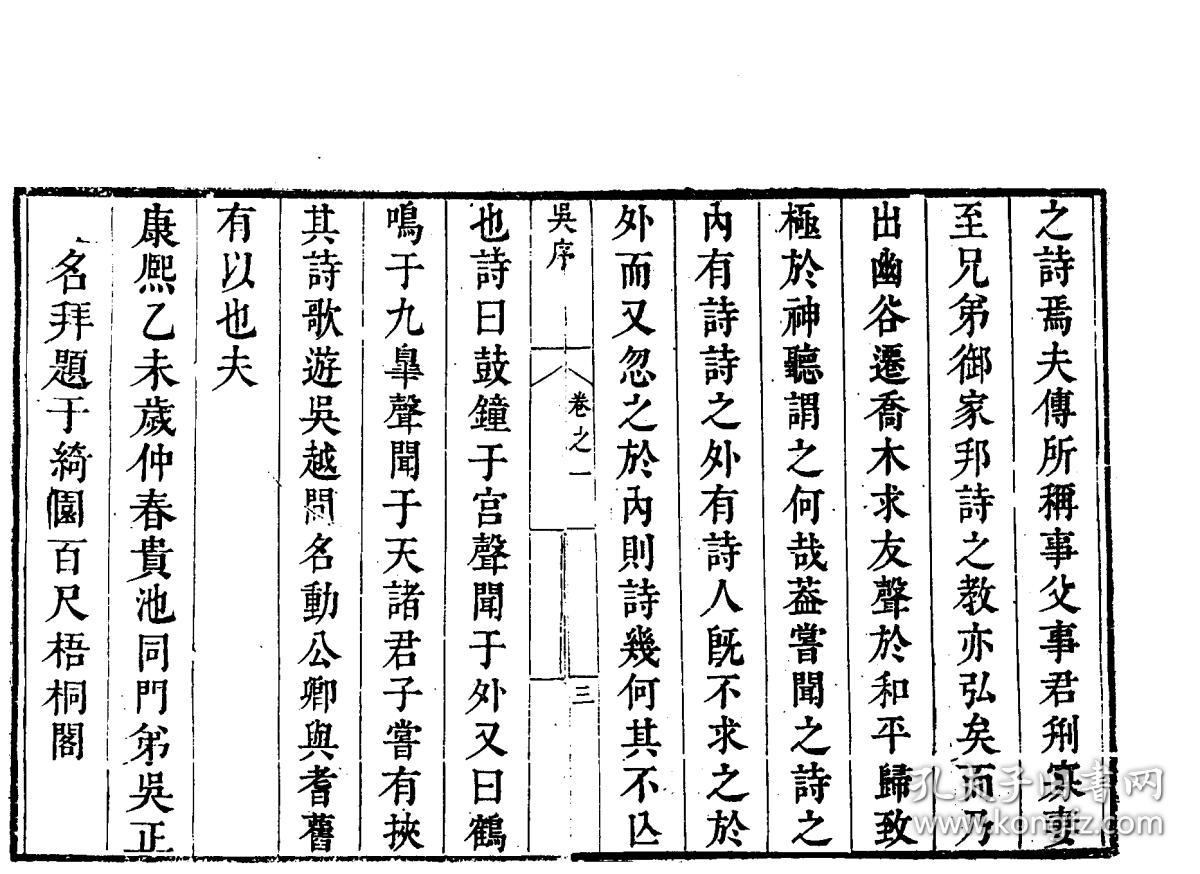 之詩焉夫傳所稱事父事君刑寡妻
至兄弟御家邦詩之教亦弘矣而乃
出幽谷遷喬木求友聲於和平歸致
極於神聽謂之何哉葢嘗聞之詩之
內有詩詩之外有詩人旣不求之於
外而又忽之於內則詩幾何其不亾
吳序 卷之一 三
也詩曰鼓鐘于宮聲聞于外又曰鶴
鳴于九臯聲聞于天諸君子嘗有挾
其詩歌遊吳越間名動公卿與耆舊
有以也夫
康熙乙未歲仲春貴池同門弟吳正
名拜題于綺園百尺梧桐閣
孔夫子旧書网
www.kongfz.com